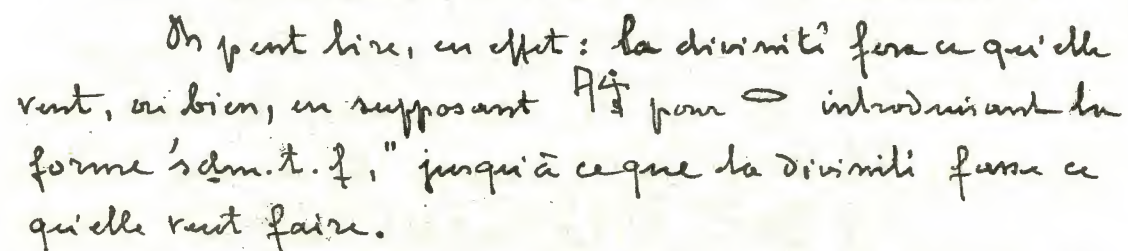 On peut lire, en effet : la divinité fera ce qu'elle
veut, ou bien, en supposant pour 𓂋 introduisant la
forme 'sḏm.t.f," jusqu'à ce que la divinité fasse ce
qu'elle veut faire.